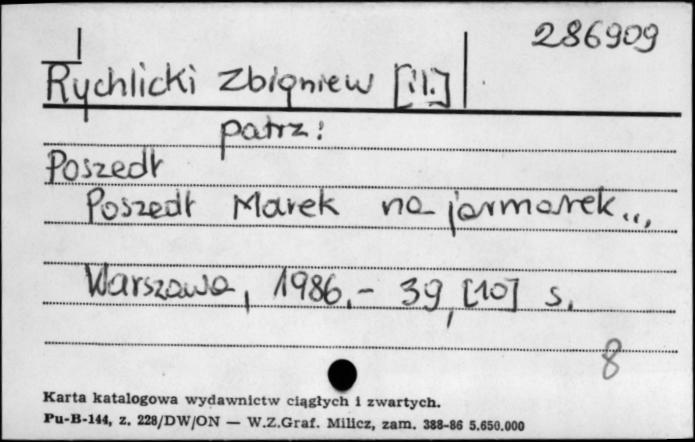 286909
Rychlicki Zbigniew [il.]
patrz:
Poszedł
Poszedł Marek na jarmarek...,
Warszawa, 1986.- 39, [10] s.
8
Karta katalogowa wydawnictw ciągłych i zwartych.
Pu-B-144, z. 228/DW/ON — W.Z.Graf. Milicz, zam. 388-86 5.650.000